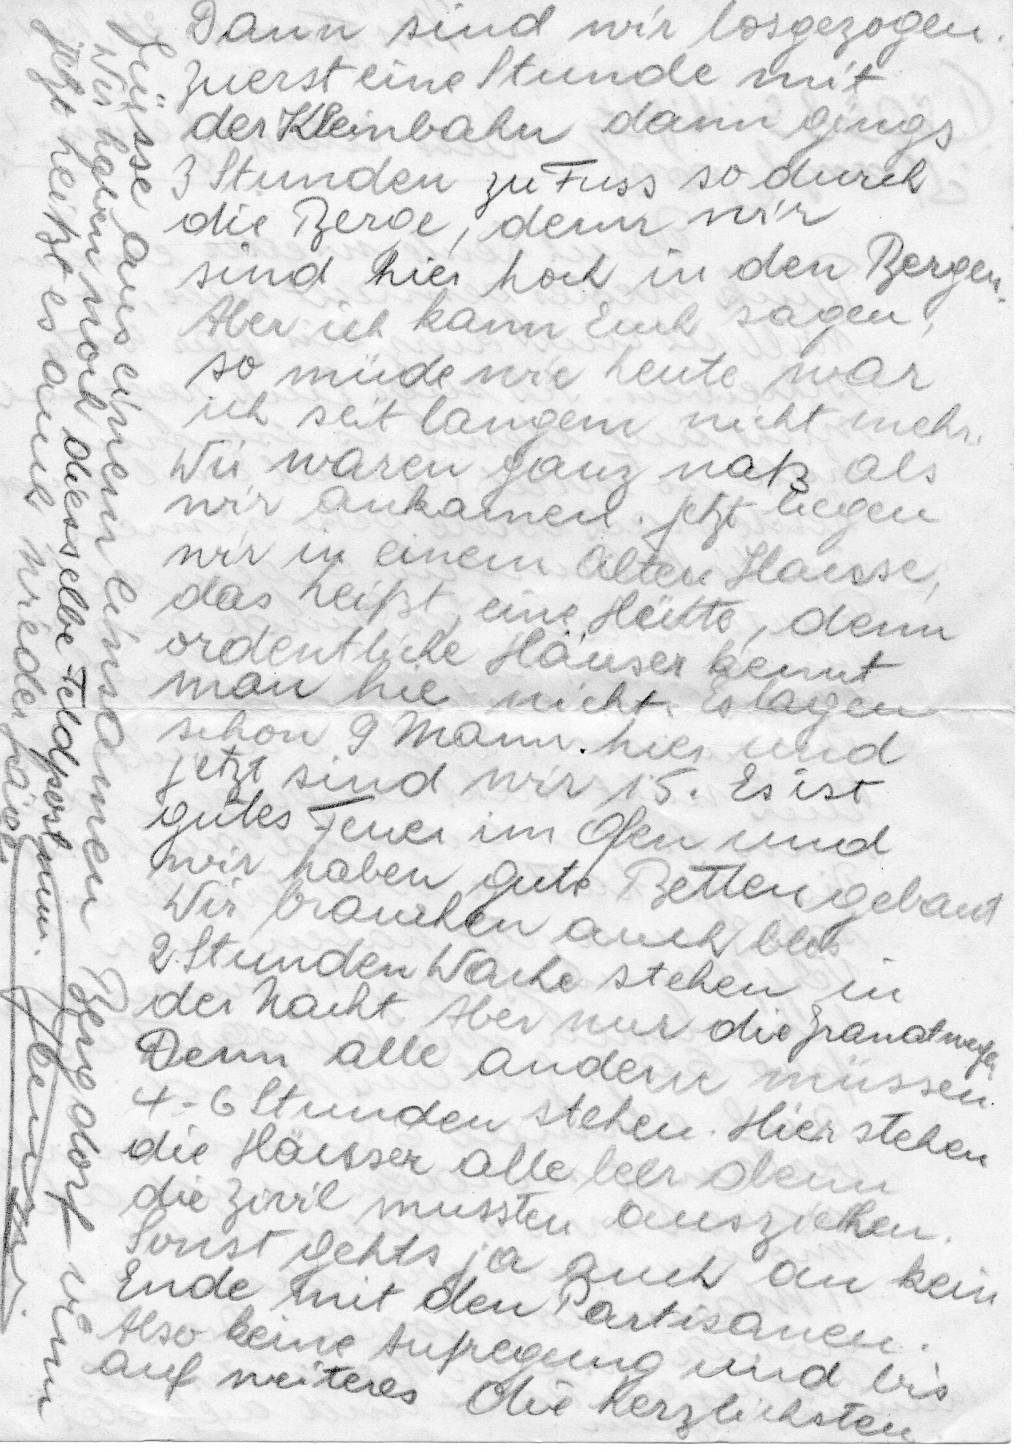 Dann sind wir losgezogen.
Zuerst eine Stunde mit
der Kleinbahn dann gings
3 Stunden zu Fuss so durch
die Berge, denn wir
sind hier hoch in den Bergen.
Aber ich kann Euch sagen,
so müde wie heute war
ich seit langem nicht mehr.
Wir waren ganz naß als
wir ankamen. Jetzt liegen
wir in einem alten Hausse,
das heißt, eine Hütte, denn
ordentliche Häuser kennt
man hie nicht. Es lagen
schon 9 Mann hier und
jetzt sind wir 15. Es ist
gutes Feuer im Ofen und
wir haben gute Betten gebaut
Wir brauchen auch blos
2 Stunden Wache stehen in
der Nacht. Aber nur die Granatwerfer
Denn alle andern müssen
4-6 Stunden stehen. Hier stehen
die Häusser alle leer denn
die Zivil mussten ausziehen.
Sonst gehts ja auch an kein
Ende mit den Partisanen.
Also keine Aufregung und bis
auf weiteres die herzlichsten
Grüsse aus einem einsamen Bergdorf
Wir haben noch diesselbe Feldpostnum.
jetzt heißt es auch wieder